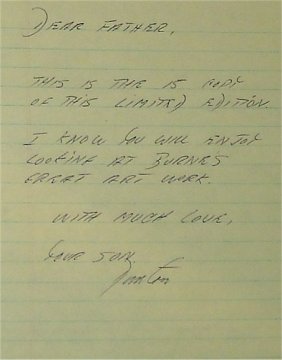 DEAR FATHER,
THIS IS THE 15 COPY
OF THIS LIMITED EDITION.
I KNOW YOU WILL ENJOY
LOOKING AT BURNES
GREAT ART WORK.
WITH MUCH LOVE,
YOUR SON,